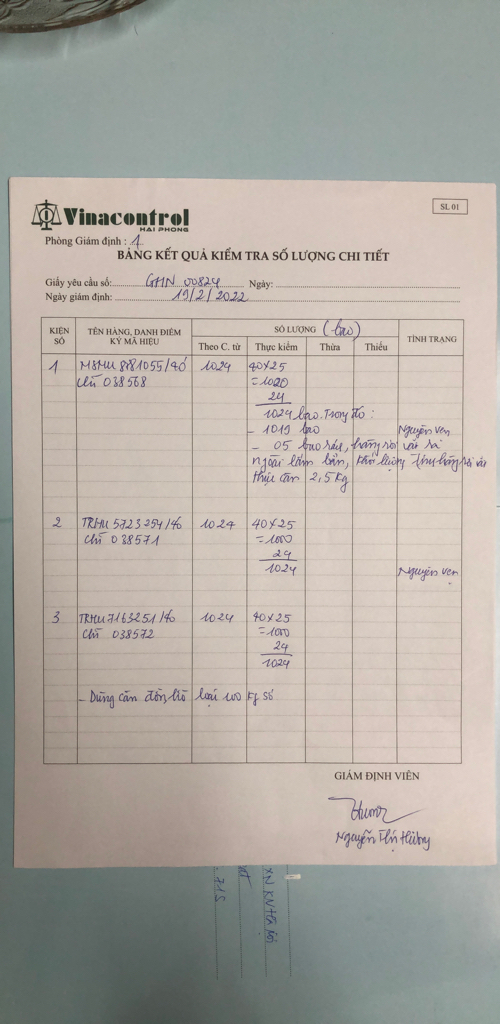 Vinacontrol
HAI PHONG
SL 01
Phòng Giám định : 1
BẢNG KẾT QUẢ KIỂM TRA SỐ LƯỢNG CHI TIẾT
Giấy yêu cầu số: GHN 00824 Ngày:
Ngày giám định: 19/2/2022
KIỆN SỐ
TÊN HÀNG, DANH ĐIỂM KÝ MÃ HIỆU
SỐ LƯỢNG (bao)
Theo C. từ Thực kiểm Thừa Thiếu
TÌNH TRẠNG
1 1024 40×25
chì 038568 =1000
24
1024 bao. Trong đó :
- 1019 bao Nguyên vẹn
- 05 bao rách, hàng rơi vãi ra
ngoài lấm bẩn, khối lượng hàng rơi vãi
thực cân 2,5 kg
2 TRHU 5723254/40 1024 40×25
chì 038571 =1000
24
1024 Nguyên vẹn
3 TRHU 7163251/40 1024 40×25
chì 038572 =1000
24
1024
- Dùng cân đồng hồ loại 100 kg số
GIÁM ĐỊNH VIÊN
Nguyễn Thị Hường
XN KN Hà Nội